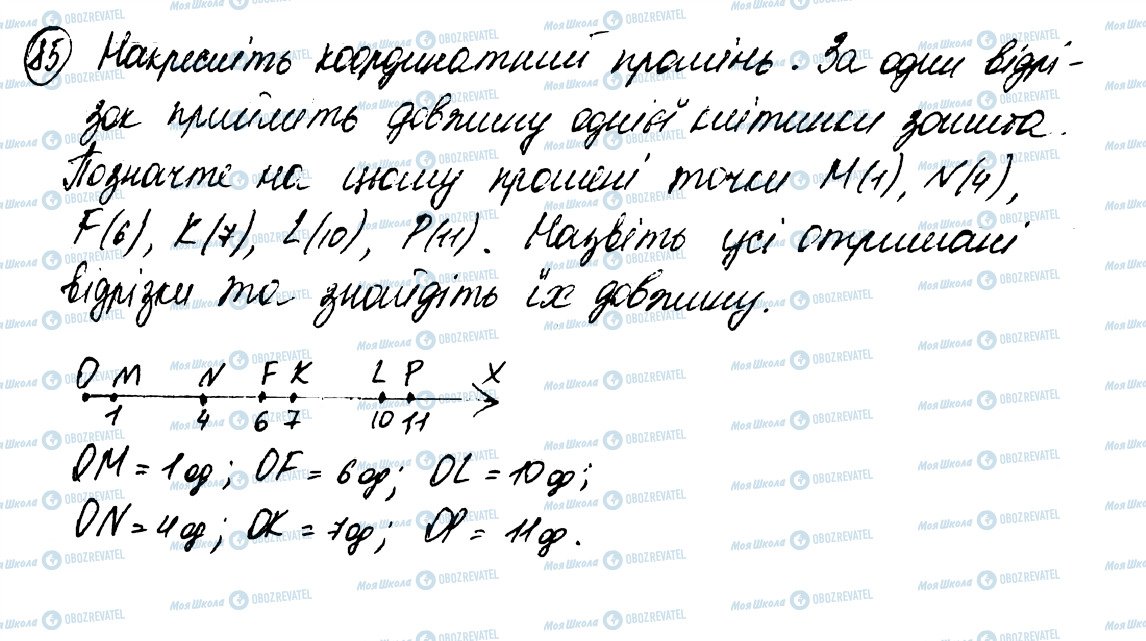 85 Накресліть координатний промінь. За один відрі-
зок прийміть довжину однієї клітинки зошита.
Позначте на цьому промені точки M(1), N(4),
F(6), K(7), L(10), P(11). Назвіть усі отримані
відрізки та знайдіть їх довжину.
O M N F K L P X
1 4 6 7 10 11
OM = 1од; OF = 6од; OL = 10од;
ON = 4од; OK = 7од; OP = 11од.